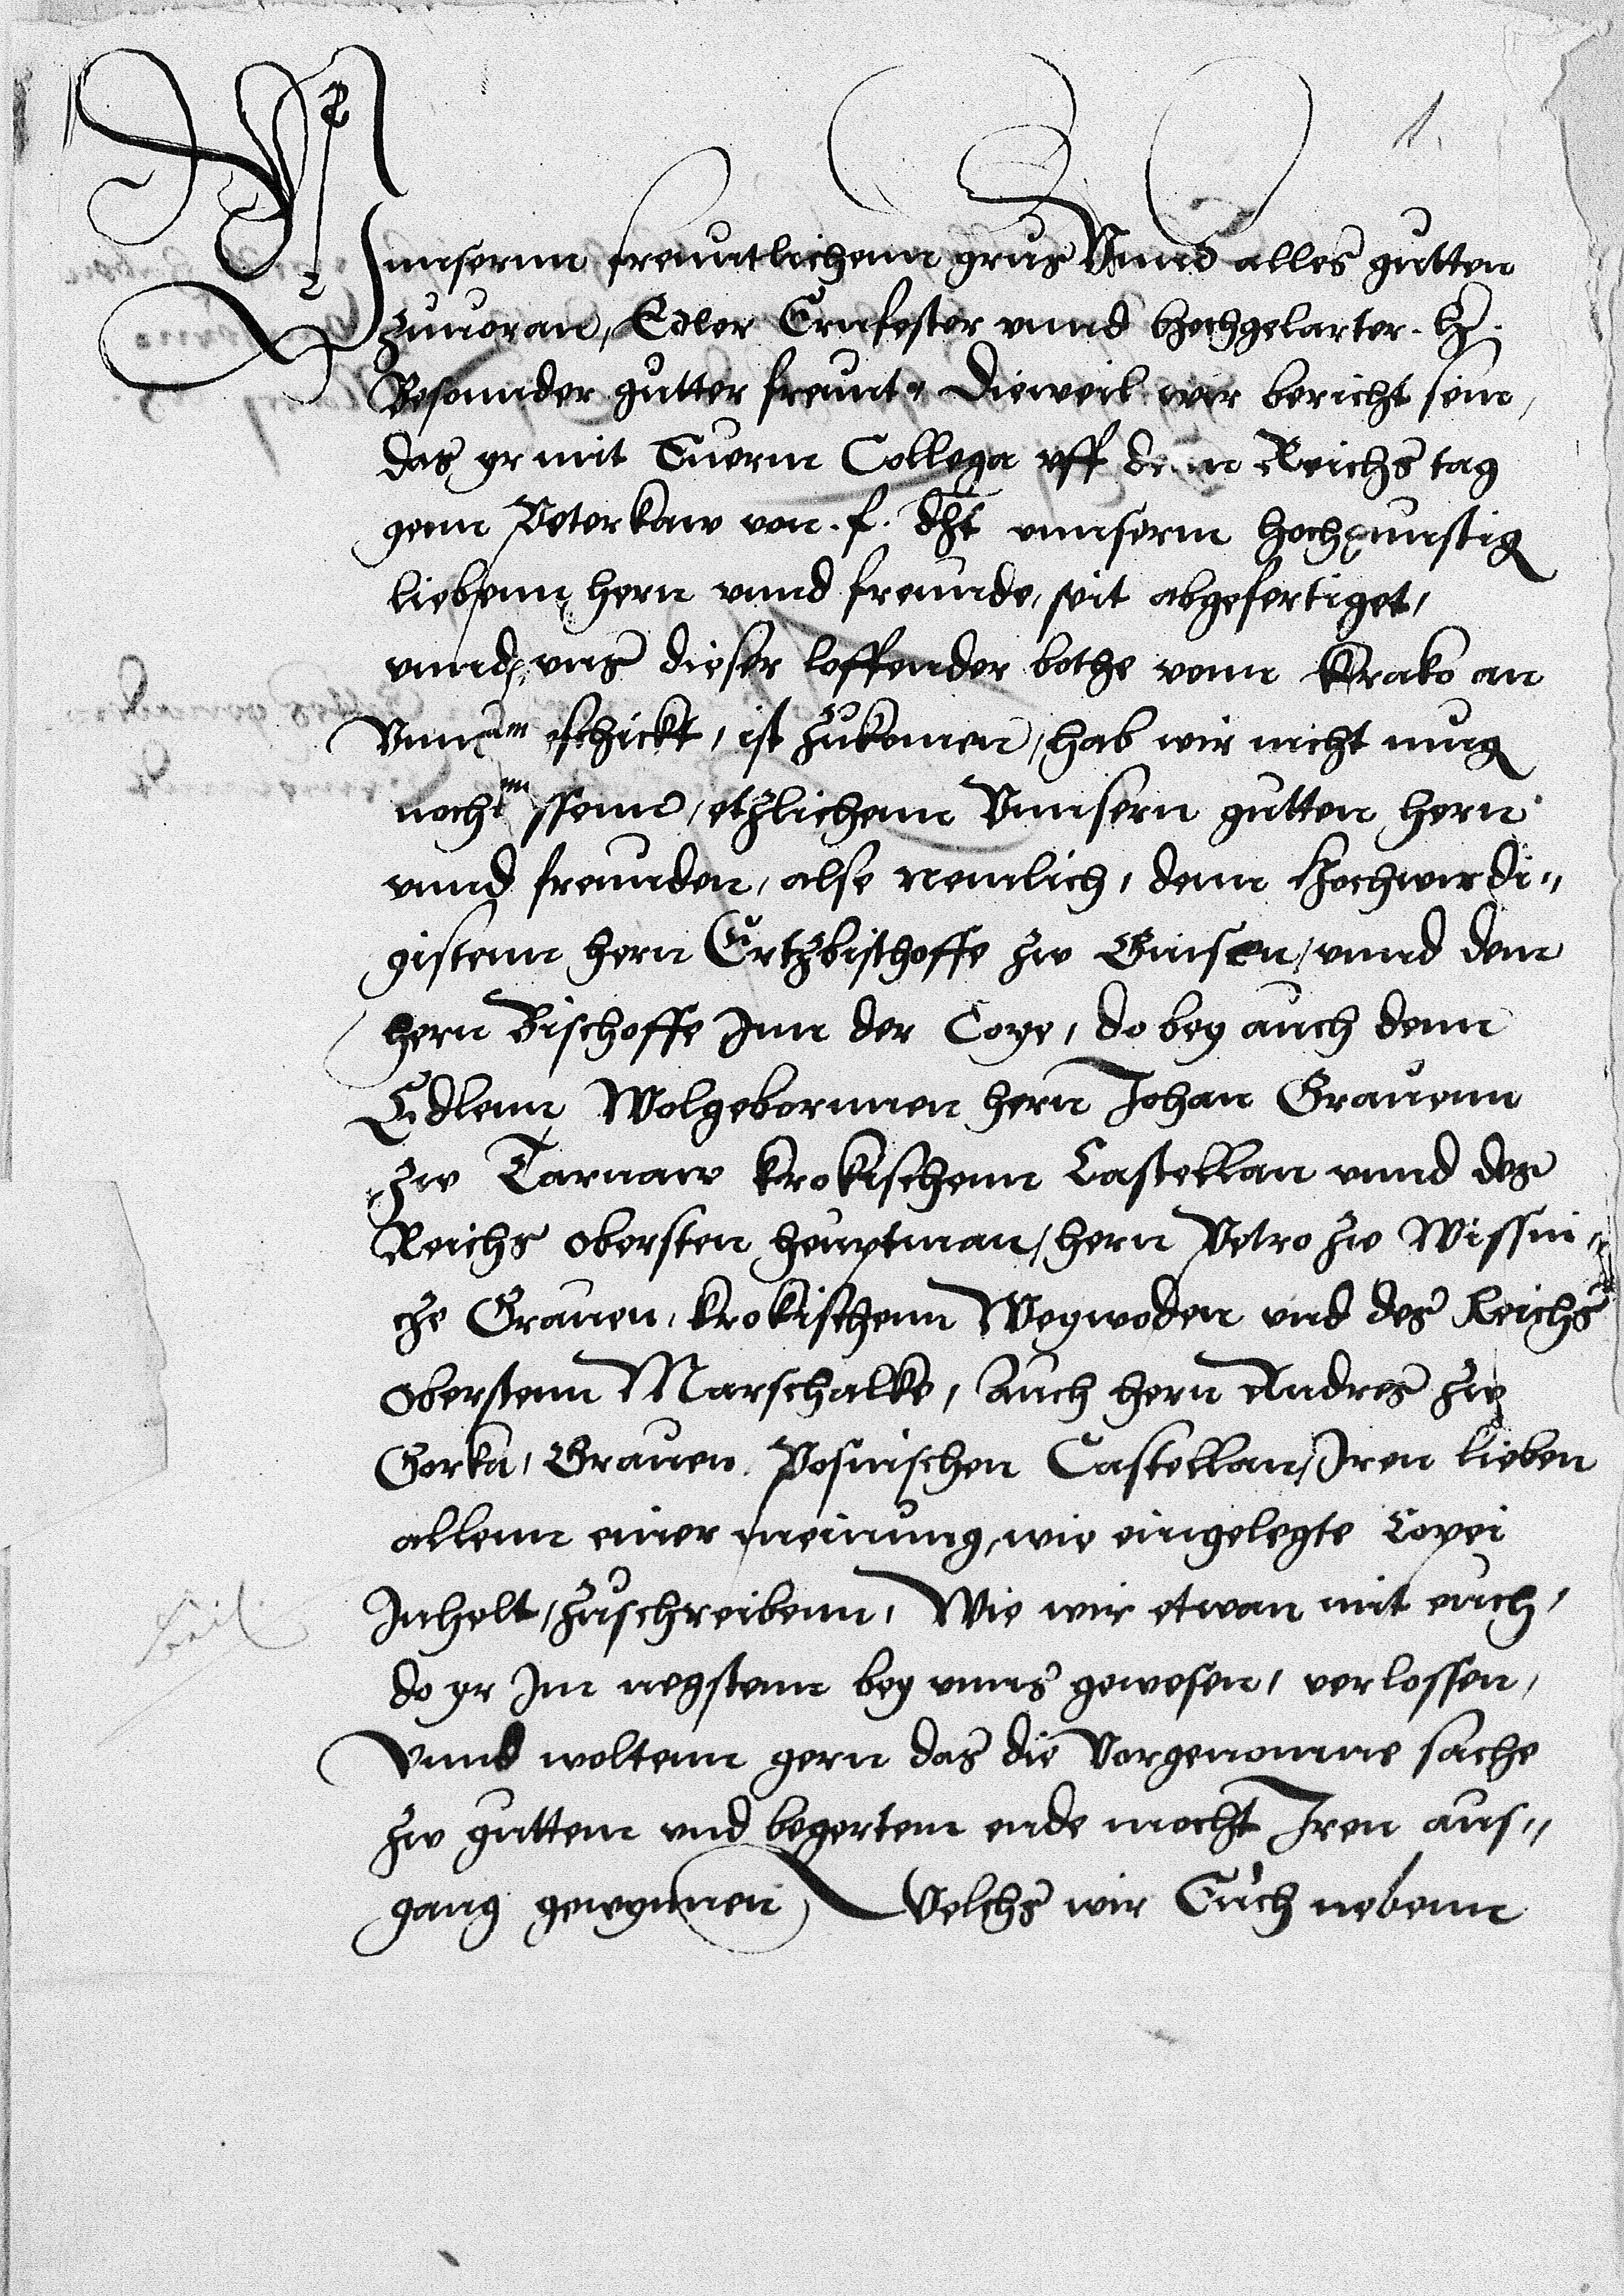 1.
Vnnserenn freuntlichenn grus Vnnd alles gutten
zuuoran, Edler Ernfester vnnd hochgelarter. H.
Besonnder gutter freunt. Dieweil wir bericht sein,
das yr mit Euerm Collega vff denn Reichs tag
genn Peterkaw von. f. dht vnnserm hochgunstig
liebenn hern vnnd freunde, seit abgefertiget,
vnnd vns dieser loffender bothe vonn Krako an
schickt, ist zukomen, hab wir nicht mug
etzlichenn Vnnsern gutten hern
vnnd freunden, alse nemlich, denn Hochwirdi„
gistenn hern Ertzbischoffe zw Gnisen, vnnd dem
hern Bischoffe Inn der Coye, do bey auch denn
Edlenn Wolgebornnen hern Johan Grauenn
zw Tarnaw krokischenn Castellan vnnd des
Reichs obersten heuptman, hern Petro zw Wissni„
cze Grauen, krokischenn Weywoden vnd des Reichs
oberstenn Marschalke, Auch hern Andres zw
Gorka, Grauen Posnischen Castellan, Iren lieben
allenn einer meinung, wie eingelegte Copei
Inhelt, zuschreibenn, Wie wir etwan mit euch,
do yr Im negstenn bey vnns gewesen, verlossen,
Vnnd woltenn gern das die Vorgenomne sache
zw guttem vnd begertem ende mocht Iren aus„
gang gewynnen, Welchs wir Euch nebenn